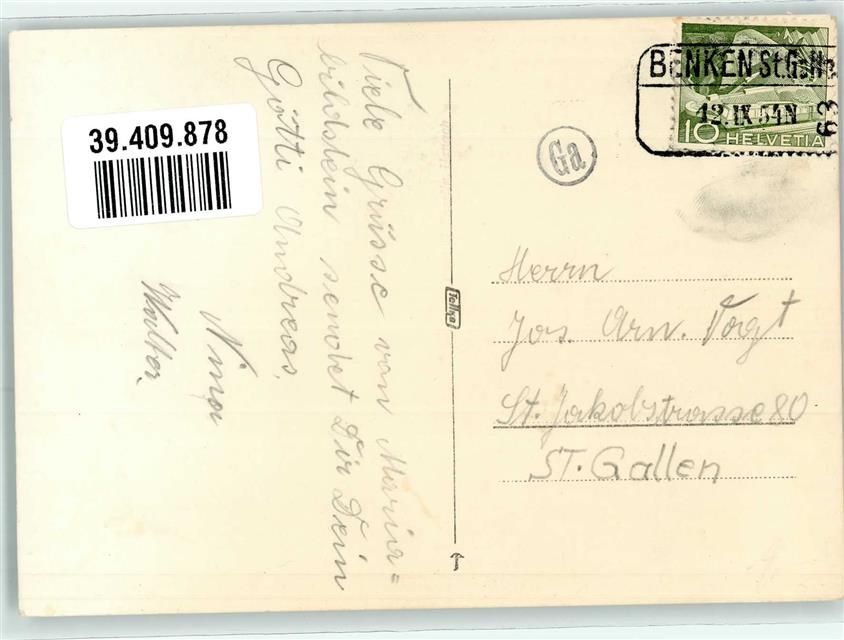 39.409.878
Viele Grüsse von Maria=
bildstein sendet Dir Dein
Götti Andreas.
Nina
Walter.
Tellko
BENKEN St.G
12.IX.51N
63
10 HELVETIA
Ga
Herrn
Jos. Arn. Vogt
St. Jakobstrasse 80
ST. Gallen